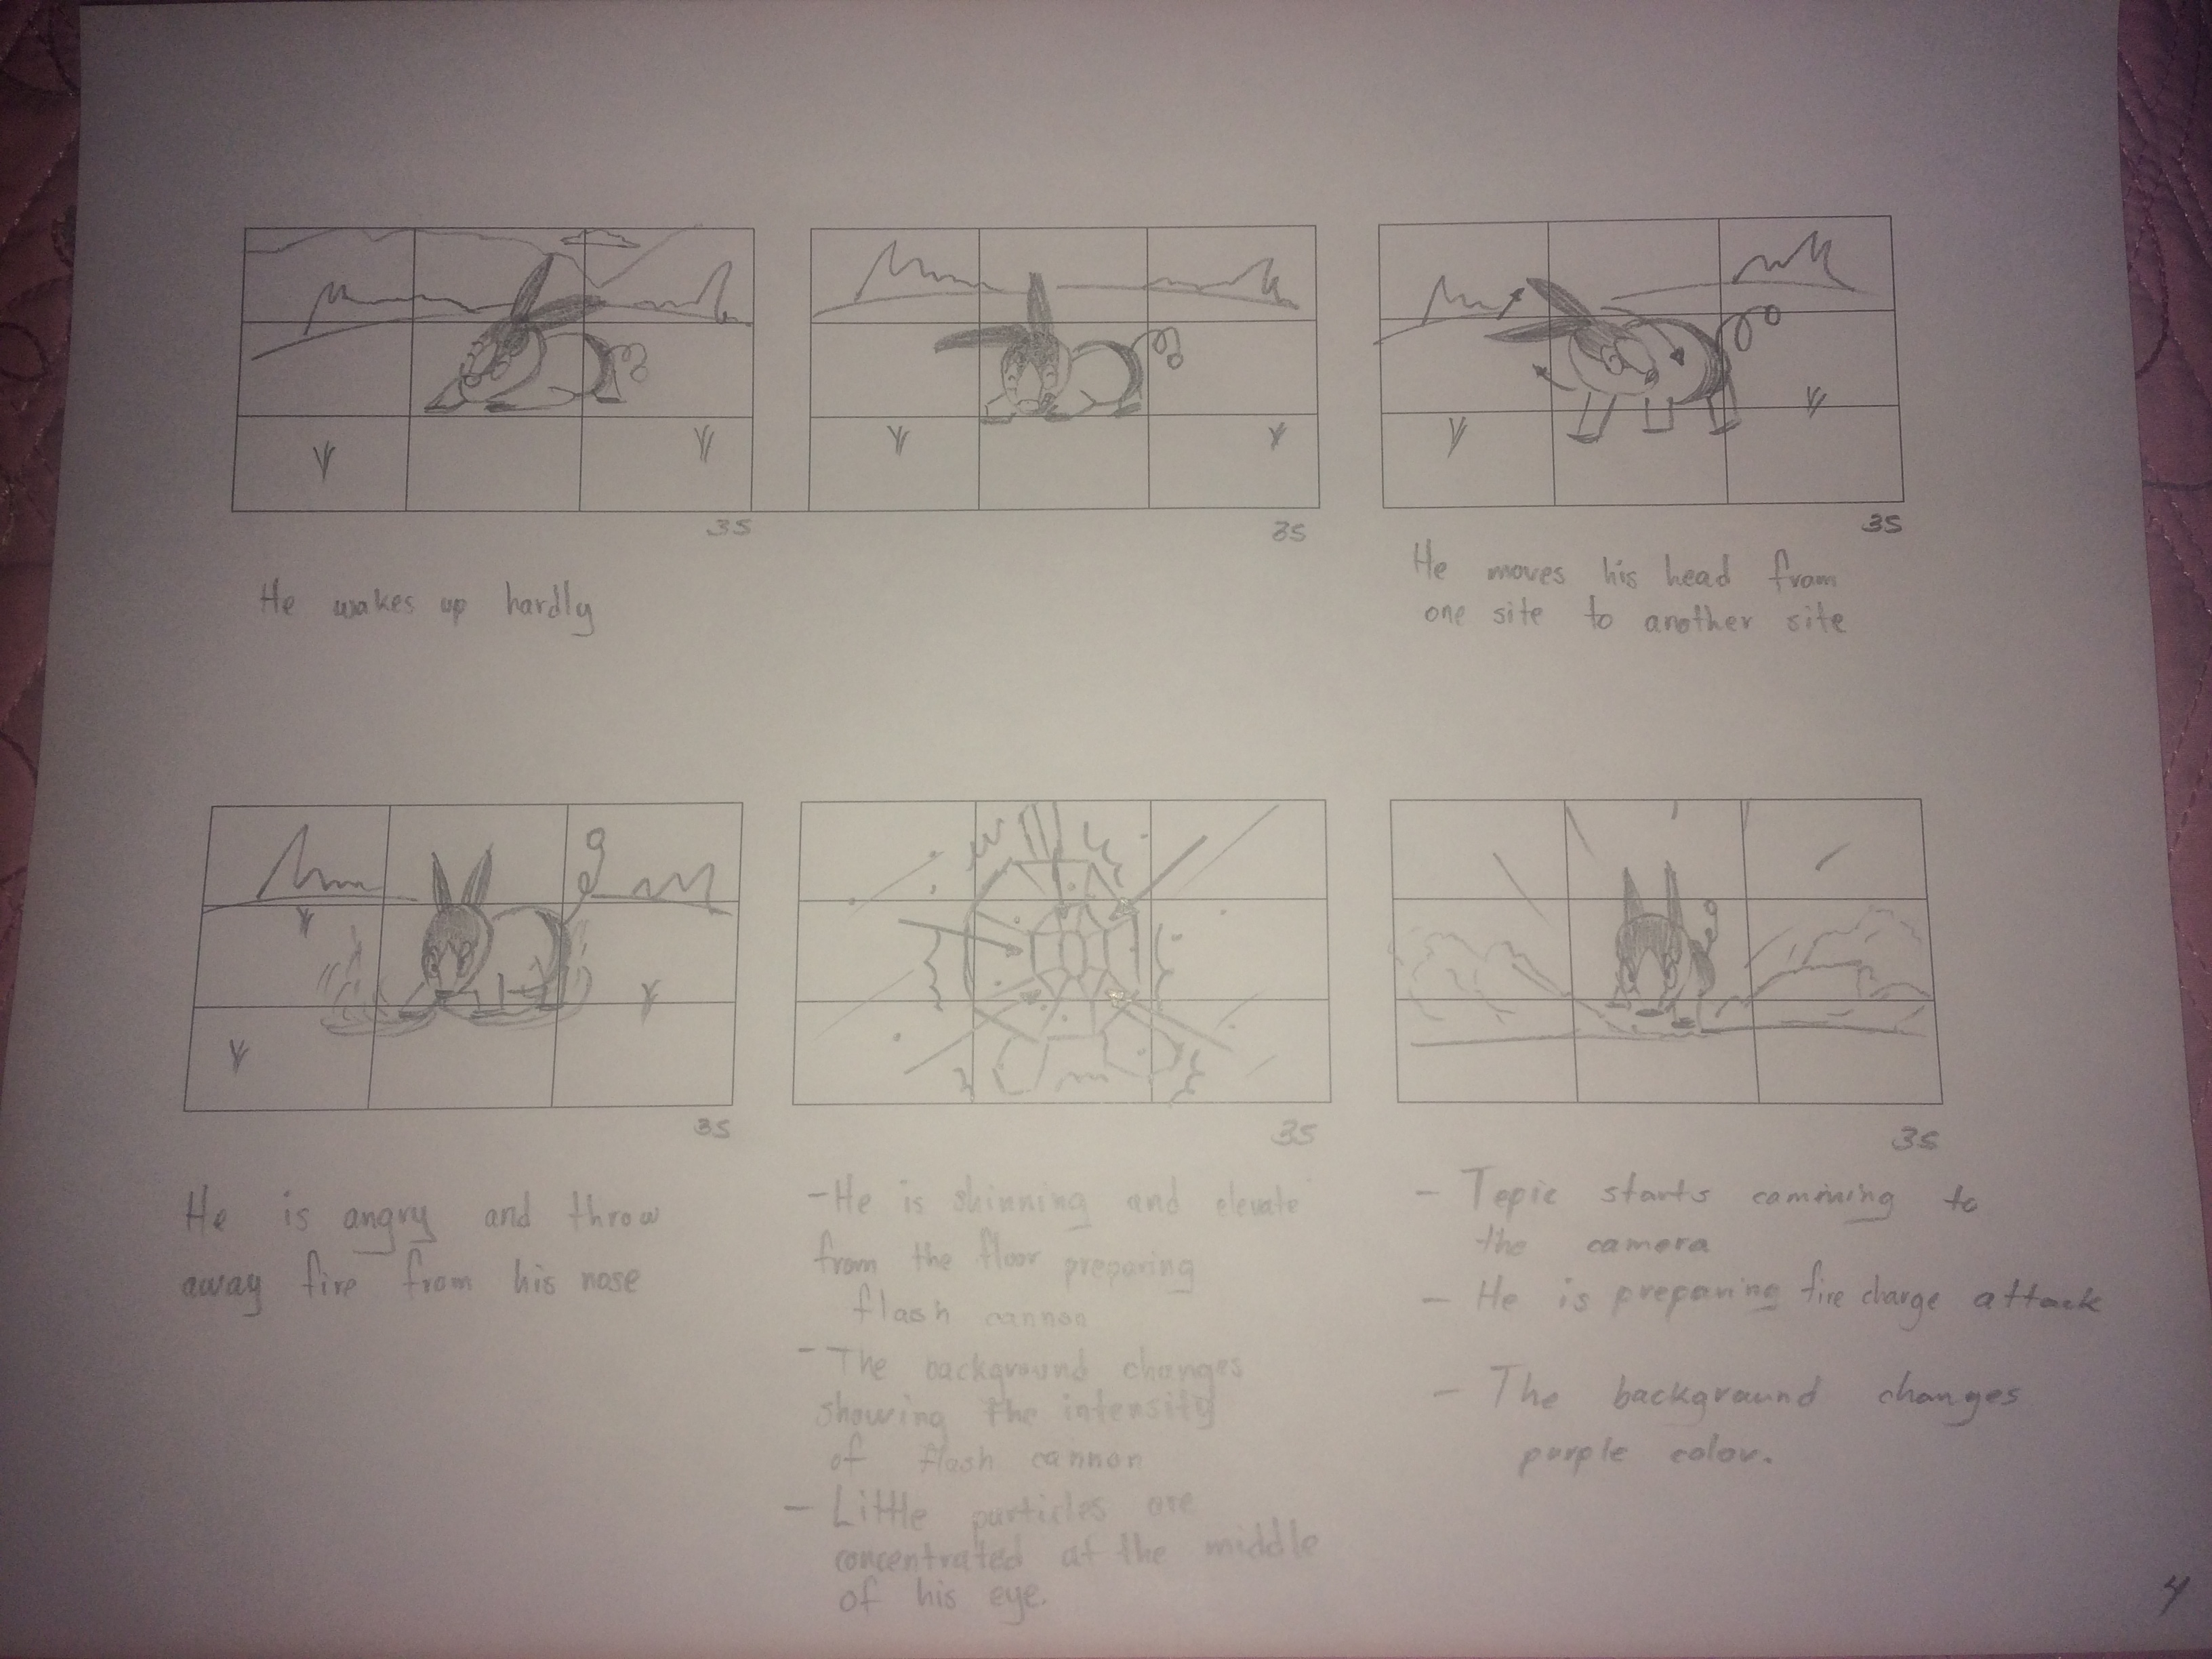 3s
3s
3s
He wakes up hardly
He moves his head from
one site to another site
3s
3s
3s
He is angry and throw
away fire from his nose
- He is shinning and elevate
from the floor preparing
flash cannon
- The background changes
showing the intensity
of flash cannon
- Little particles are
concentrated at the middle
of his eye.
- Tepic starts comming to
the camera
- He is preparing fire charge attack
- The background changes
purple color.
4